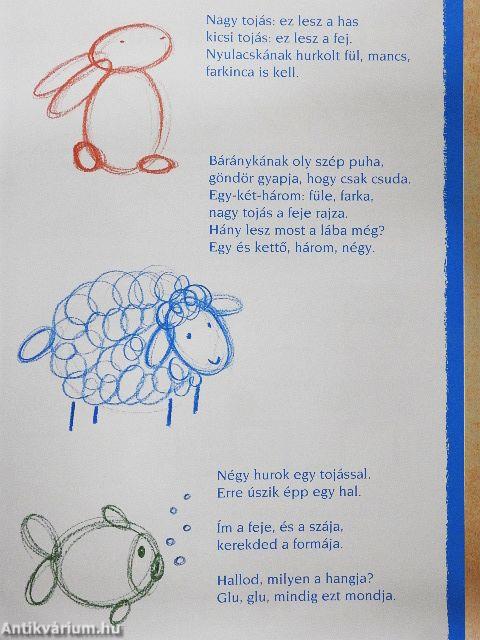 Nagy tojás: ez lesz a has
kicsi tojás: ez lesz a fej.
Nyulacskának hurkolt fül, mancs,
farkinca is kell.
Báránykának oly szép puha,
göndör gyapja, hogy csak csuda.
Egy-két-három: füle, farka,
nagy tojás a feje rajza.
Hány lesz most a lába még?
Egy és kettő, három, négy.
Négy hurok egy tojással.
Erre úszik épp egy hal.
Ím a feje, és a szája,
kerekded a formája.
Hallod, milyen a hangja?
Glu, glu, mindig ezt mondja.
Antikvárium.hu